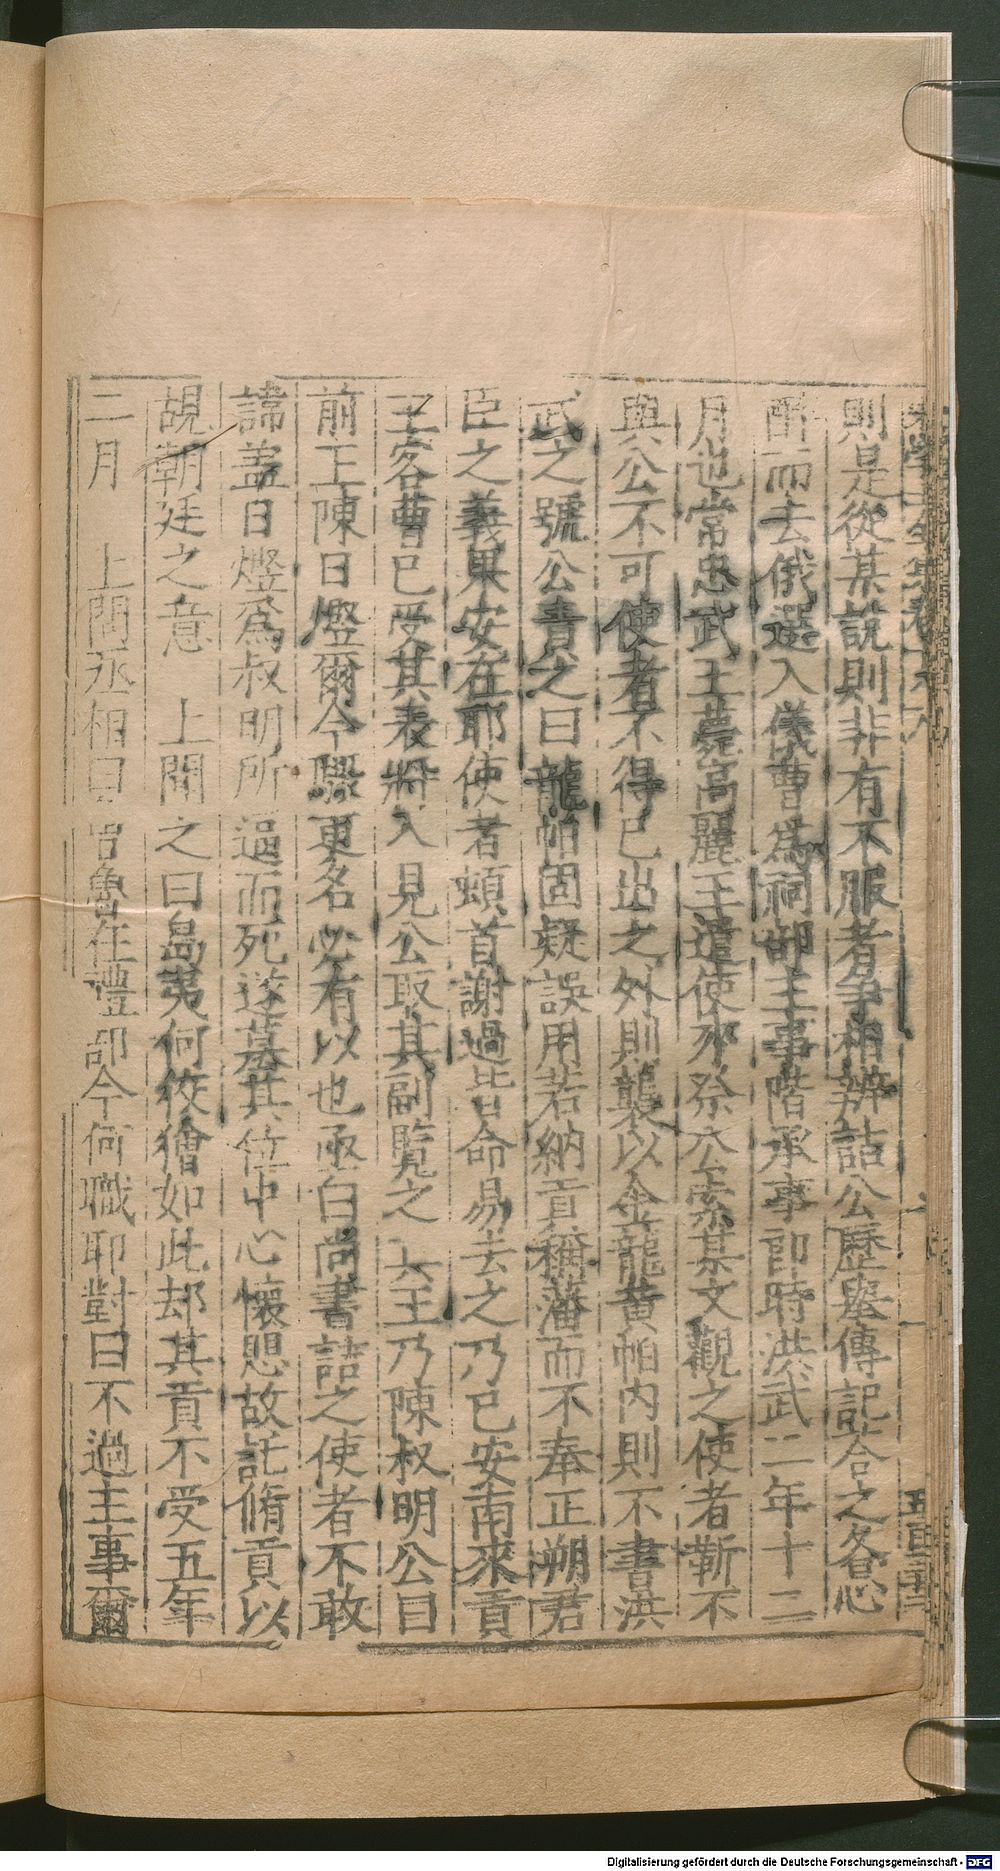 則是從某說則非有不服者爭相辨詰公歷舉傳記荅之各心
酧而去俄選入儀曹爲祠部主事階承事郎時洪武二年十二
月也常忠武王薨高麗王遣使來祭公索某文觀之使者靳不
與公不可使者不得已出之外則襲以金龍黃帕內則不書洪
武之號公責之曰龍帕固疑誤用若納貢稱藩而不奉正朔君
臣之義果安在耶使者頓首謝過皆命易去之乃已安南來貢
主客曹已受其表將入見公取其副覽之 王乃陳叔明公曰
前王陳日熞爾今驟更名必有以也亟白尚書詰之使者不敢
諱盖日熞爲叔明所逼而死遂簒其位中心懷思故託脩貢以
覘朝廷之意 上聞之曰島夷何狡獪如此却其貢不受五年
二月 上問丞相曰 魯在禮部今何職耶對曰不過主事爾
宋學士全集卷